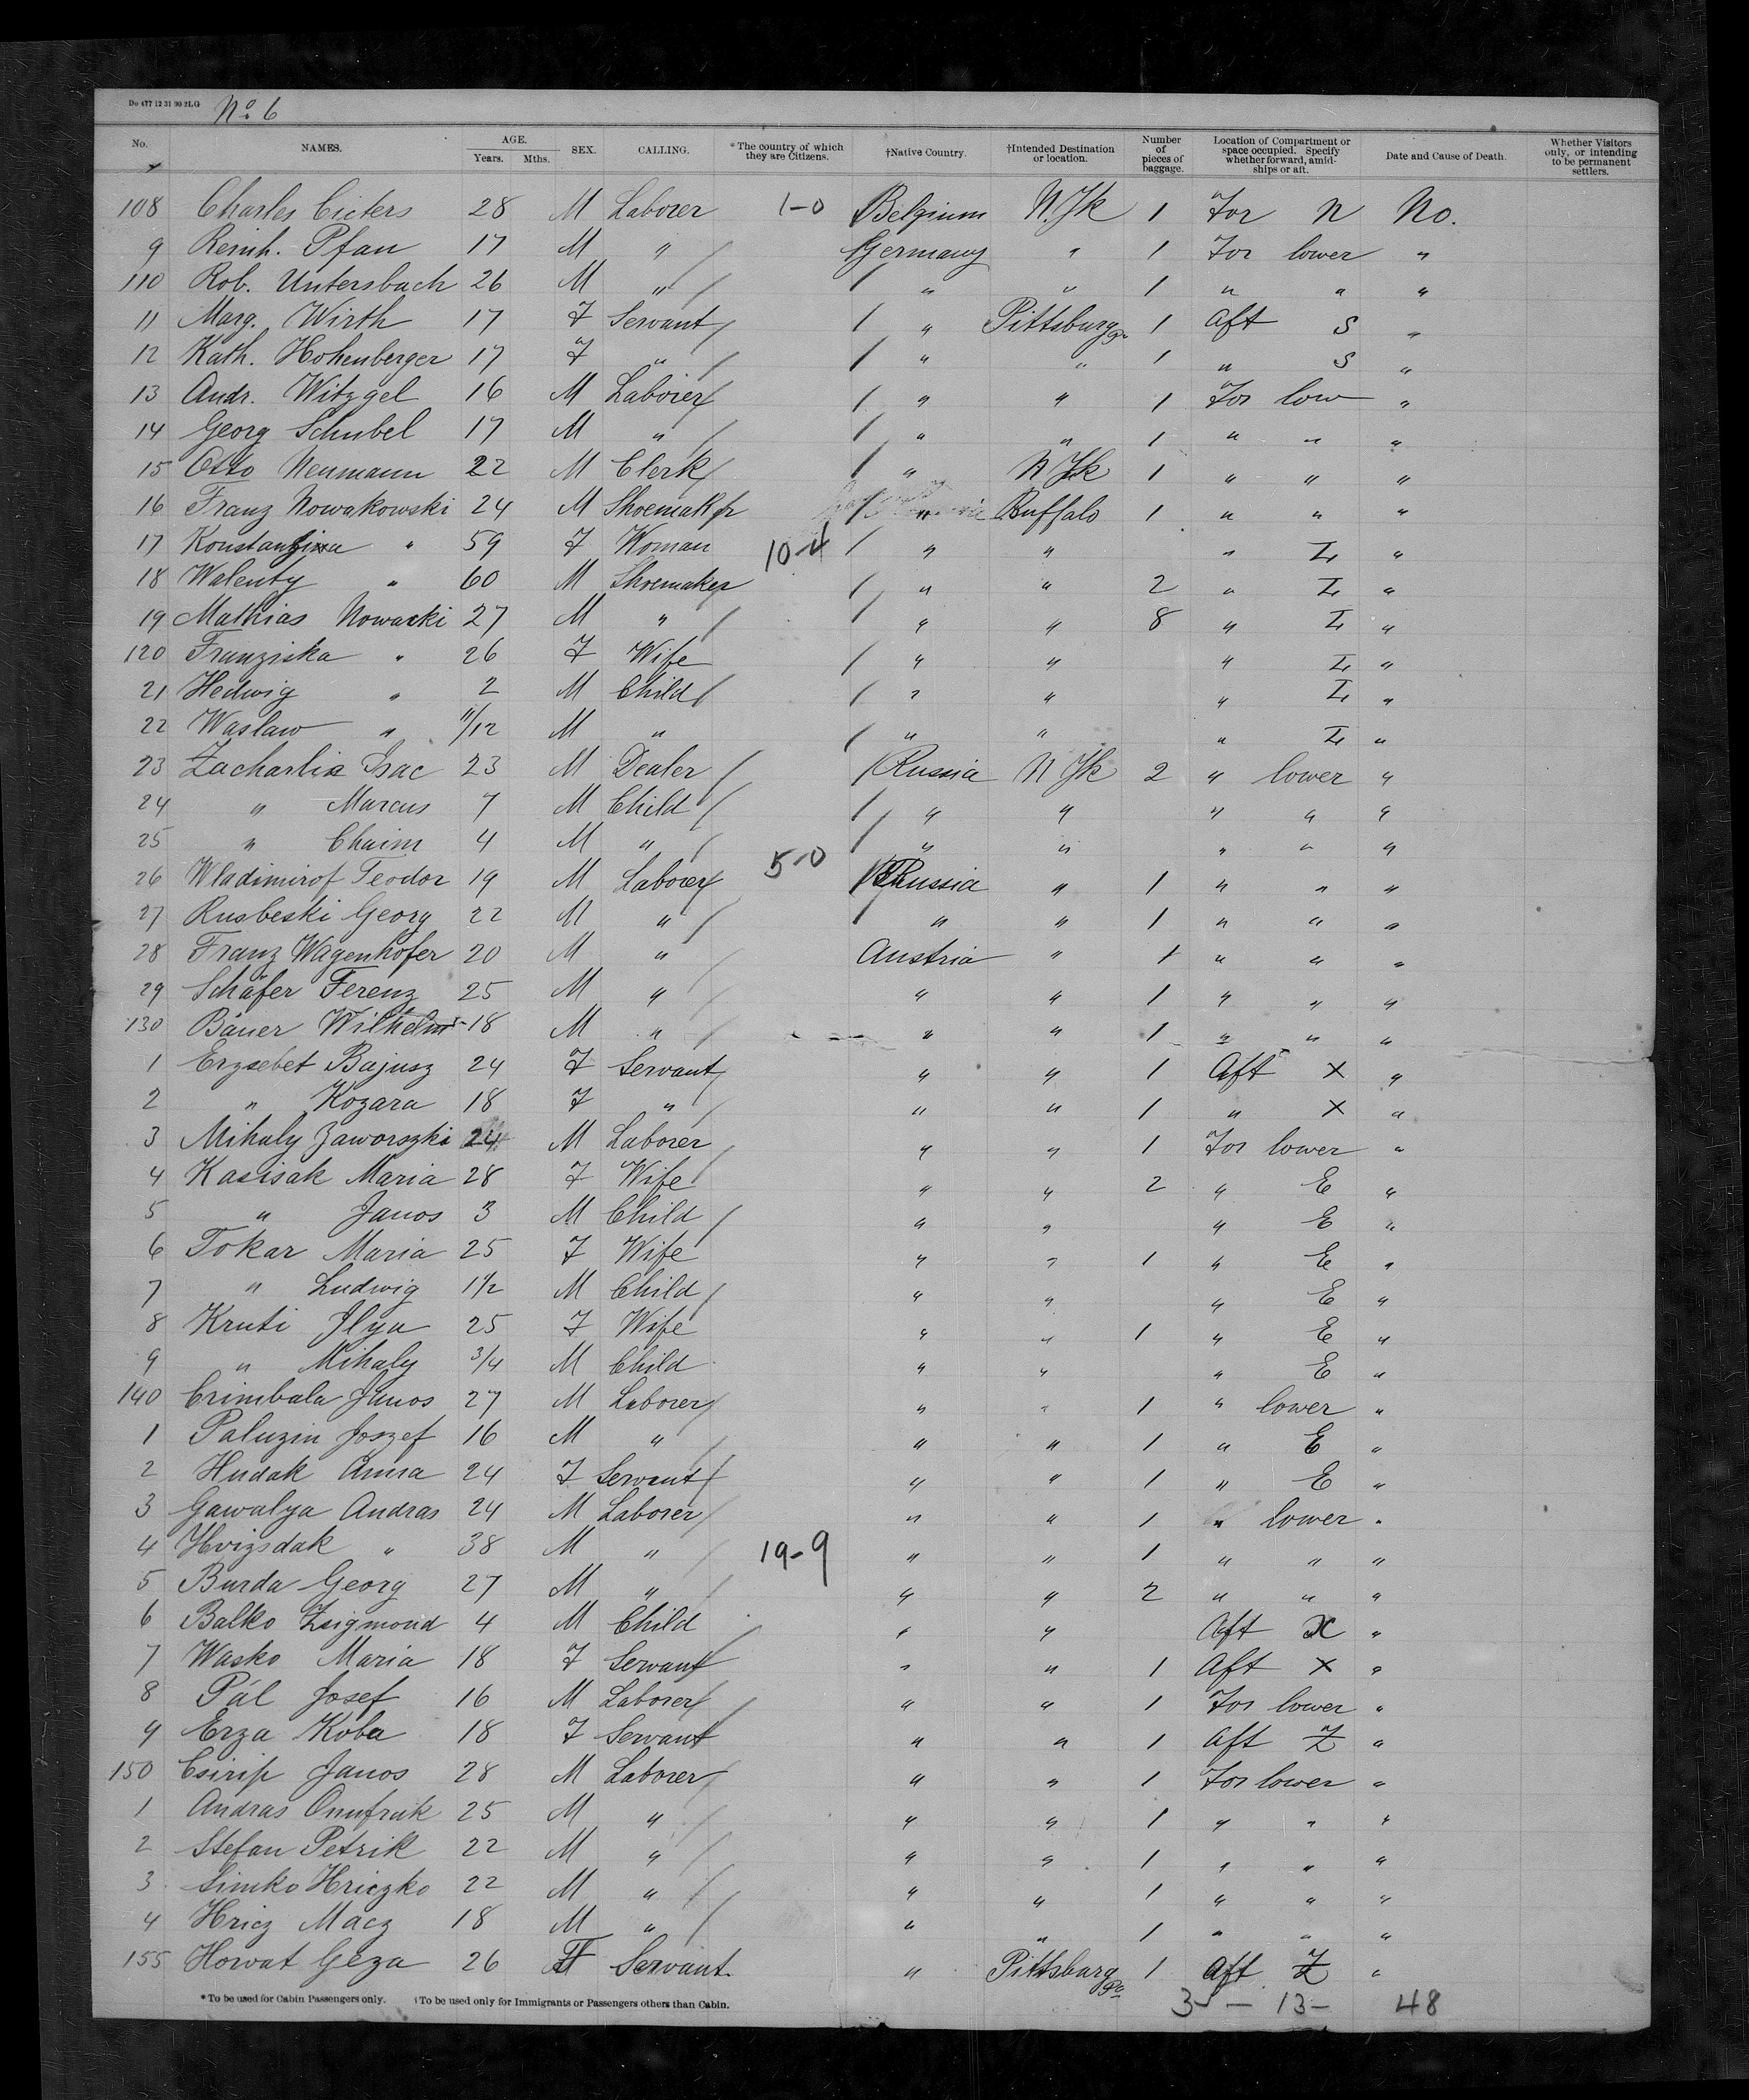 Do 477 12 31 90 2LG No. 6
No. NAMES. AGE. Years. Mths. SEX. CALLING. *The country of which they are Citizens. †Native Country. †Intended Destination or location. Number of pieces of baggage. Location of Compartment or space occupied. Specify whether forward, amidships or aft. Date and Cause of Death. Whether Visitors only, or intending to be permanent settlers.
108 Charles Cieters 28 M Laborer 1-0 Belgium N.Yk 1 For N No.
9 Reinh. Pfau 17 M " / Germany " 1 For lower "
110 Rob. Untersbach 26 M " / / " " 1 " " "
11 Marg. Wirth 17 F Servant / / " Pittsburg Pa 1 Aft S "
12 Kath. Hohenberger 17 F " / / " " 1 " S "
13 Andr. Witzgel 16 M Laborer / / " " 1 For low "
14 Georg Schubel 17 M " / / " " 1 " " "
15 Otto Neumann 22 M Clerk / / " N Yk 1 " " "
16 Franz Nowakowski 24 M Shoemaker / " Buffalo 1 " " "
17 Konstantina " 59 F Woman 10-4 / " " " L "
18 Walenty " 60 M Shoemaker / " " 2 " L "
19 Mathias Nowacki 27 M " / / " " 8 " L "
120 Franziska " 26 F Wife / " " " L "
21 Hedwig " 2 M Child / / " " " L "
22 Waslaw " 11/12 M " / " " " L "
23 Zacharlia Isac 23 M Dealer / / Russia N Yk 2 " lower "
24 " Marcus 7 M Child / / " " " " "
25 " Chaim 4 M " / / " " " " "
26 Wladimirof Teodor 19 M Laborer / 5-0 / Russia " 1 " " "
27 Rusbeski Georg 22 M " / / " " 1 " " "
28 Franz Wagenhofer 20 M " Austria " 1 " " "
29 Schäfer Ferenz 25 M " / " " 1 " " "
130 Bauer Wilhelm 18 M " / " " 1 " " "
1 Erzsebet Bajusz 24 F Servant / " " 1 Aft X "
2 " Kozara 18 F " / " " 1 " X "
3 Mihaly Jaworszki 24 M Laborer " " 1 For lower "
4 Kasisak Maria 28 F Wife / " " 2 " E "
5 " Janos 3 M Child / " " " E "
6 Tokar Maria 25 F Wife " " 1 " E "
7 " Ludwig 1 1/2 M Child / " " " E "
8 Kruti Ilya 25 F Wife " " 1 " E "
9 " Mihaly 3/4 M Child " " " E "
140 Crimbala Janos 27 M Laborer / " " 1 " lower "
1 Paluzin Joszef 16 M " / " " 1 " E "
2 Hudak Anna 24 F Servant / " " 1 " E "
3 Gawalya Andras 24 M Laborer / " " 1 " lower "
4 Hvizsdak " 38 M " / 19-9 " " 1 " " "
5 Burda Georg 27 M " / " " 2 " " "
6 Balko Zsigmond 4 M Child " " Aft X "
7 Wasko Maria 18 F Servant / " " 1 Aft X "
8 Pál Josef 16 M Laborer / " " 1 For lower "
9 Erza Koba 18 F Servant / " " 1 Aft Z "
150 Csirip Janos 28 M Laborer / " " 1 For lower "
1 Andras Onufrak 25 M " / " " 1 " " "
2 Stefan Petrik 22 M " / " " 1 " " "
3 Simko Hriczko 22 M " / " " 1 " " "
4 Hricz Macz 18 M " / " " 1 " " "
155 Horvat Geza 26 F Servant " Pittsburg Pa 1 Aft Z "
*To be used for Cabin Passengers only. †To be used only for Immigrants or Passengers others than Cabin. 35 - 13 - 48